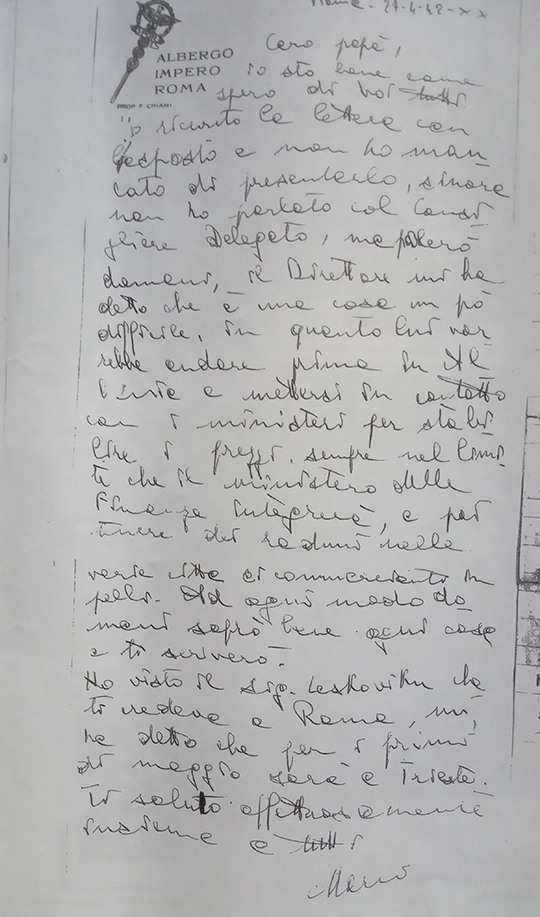 Roma - 27-4-42-XX
ALBERGO
IMPERO
ROMA
PROP. F. CHIANI
Caro papà,
io sto bene come
spero di voi tutti.
Ho ricevuto la lettera con
l'esposto e non ho man
cato di presentarlo, sinora
non ho parlato col Consi
gliere Delegato, ma parlerò
domani, il Direttore mi ha
detto che è una cosa un pò
difficile, in quanto lui vor
rebbe andare prima in Al
bania e mettersi in contatto
con i ministeri per stabi
lire i prezzi, sempre nel limi
te che il ministero delle
Finanze integrerà, e poi
tenere dei raduni nelle
varie città ai commercianti in
pelli. Ad ogni modo do
mani saprò bene ogni cosa
e ti scriverò.
Ho visto il sig. Leskoviku che
ti vedeva a Roma, mi
ha detto che per i primi
di maggio sarà a Trieste.
Ti saluto affettuosamente
insieme a tutti
Mario